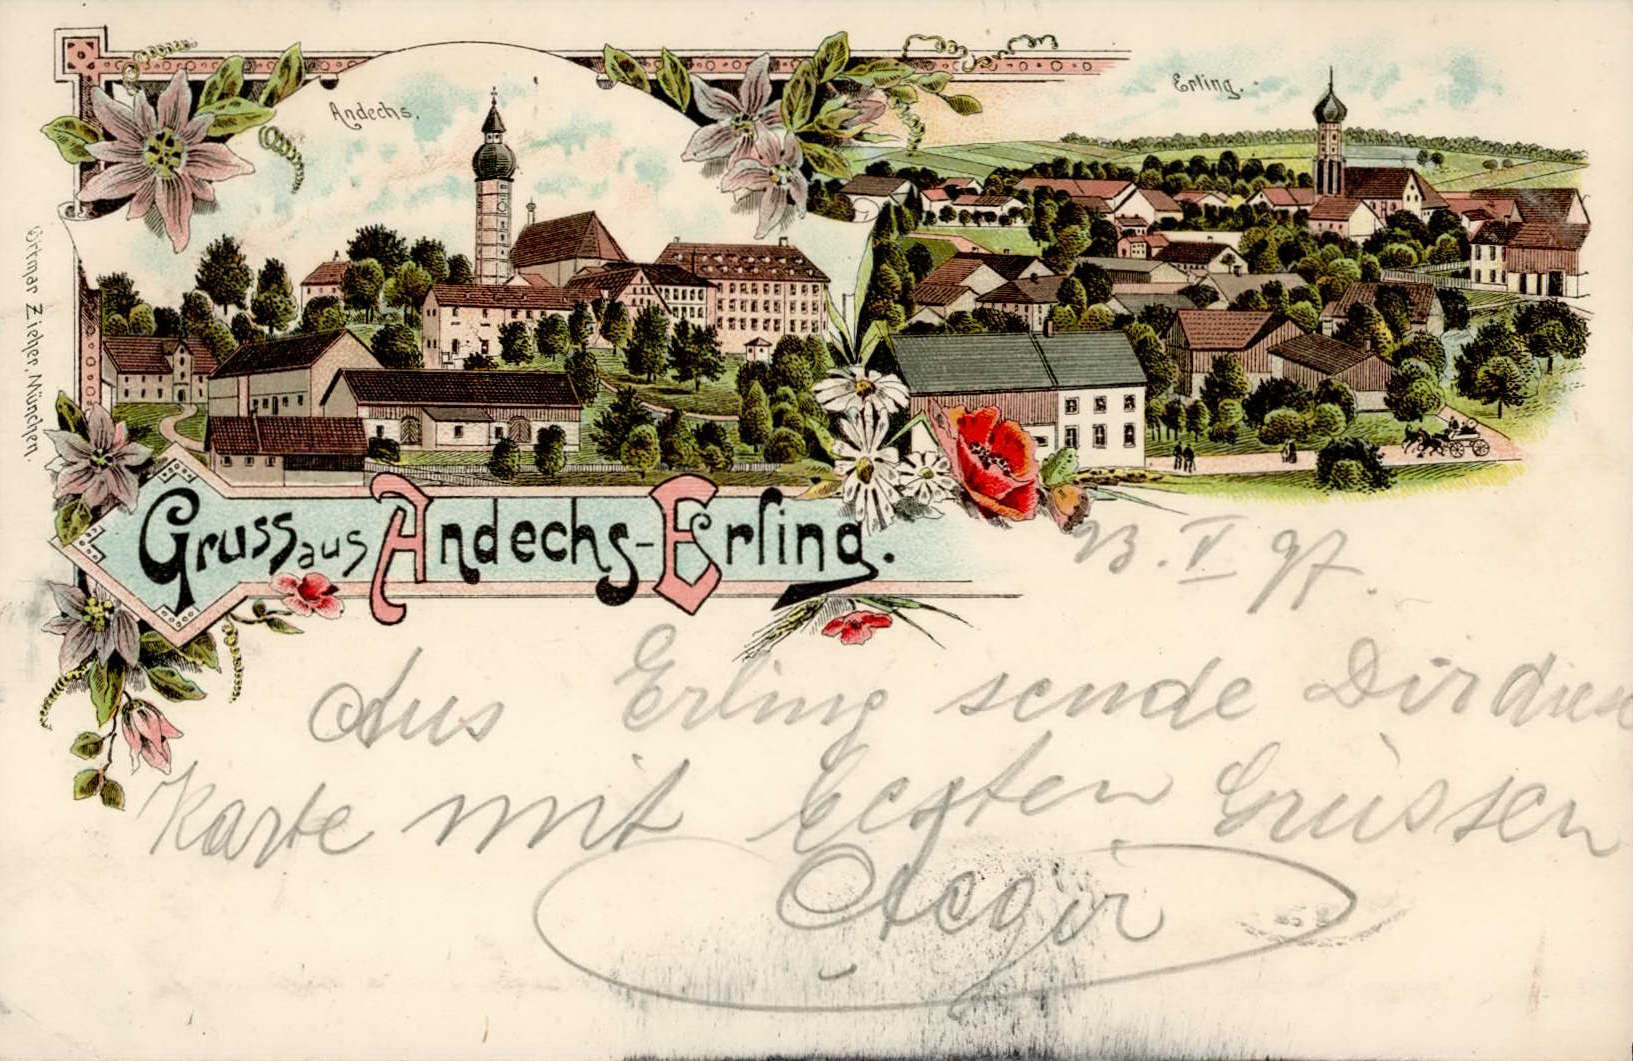 Andechs.
Erling.
Ottmar Zieher, München.
Gruss aus Andechs-Erling.
23. V 97.
Aus Erling sende Dir diese
Karte mit besten Grüssen
Aegir